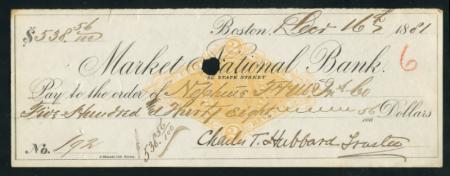 $538 56/100 Boston, Dec 16th 1881
Market National Bank.
86 STATE STREET
6
Pay to the order of Neptune Ins Co
Five Hundred & Thirty Eight 56/100 Dollars
No. 192 538 56/100 Charles T. Hubbard Trustee